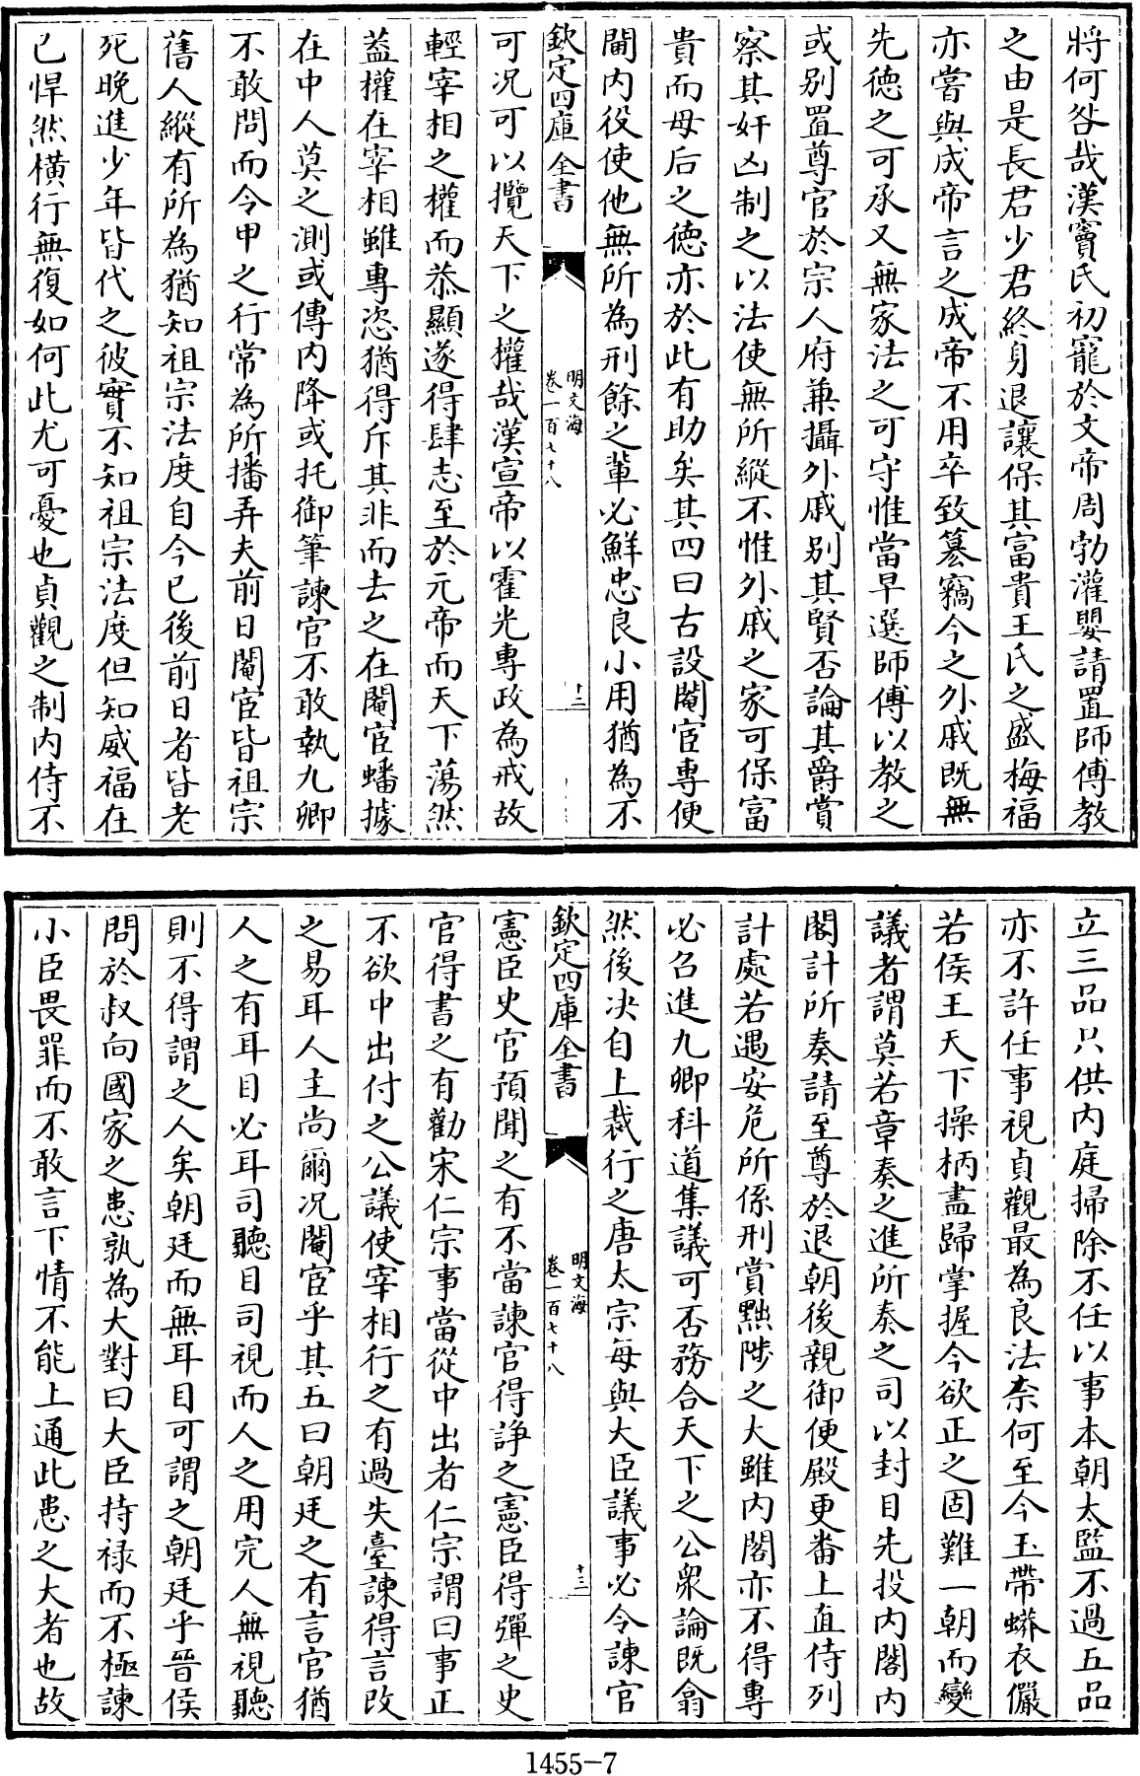 將何咎哉漢竇氏初寵於文帝周勃灌嬰請置師傅教
之由是長君少君終身退讓保其富貴王氏之盛梅福
亦嘗與成帝言之成帝不用卒致簒竊今之外戚既無
先德之可承又無家法之可守惟當早選師傅以教之
或別置尊官於宗人府兼攝外戚別其賢否論其爵賞
察其奸凶制之以法使無所縱不惟外戚之家可保富
貴而母后之德亦於此有助矣其四曰古設閹宦専便
閫内役使他無所為刑餘之輩必鮮忠良小用猶為不
欽定四庫全書
明文海
卷一百七十八
十二
可况可以攬天下之權哉漢宣帝以霍光專政為戒故
輕宰相之權而恭顯遂得肆志至於元帝而天下蕩然
葢權在宰相雖專恣猶得斥其非而去之在閹宦蟠據
在中人莫之測或傳内降或托御筆諫官不敢執九卿
不敢問而令甲之行常為所播弄夫前日閹宦皆祖宗
舊人縱有所為猶知祖宗法度自今已後前日者皆老
死晚進少年皆代之彼實不知祖宗法度但知威福在
已悍然横行無復如何此尤可憂也貞觀之制内侍不
立三品只供内庭掃除不任以事本朝太監不過五品
亦不許任事視貞觀最為良法柰何至今玉帶蟒衣儼
若侯王天下操柄盡歸掌握今欲正之固難一朝而變
議者謂莫若章奏之進所奏之司以封目先投内閣内
閣計所奏請至尊於退朝後親御便殿更畨上直侍列
計處若遇安危所係刑賞黜陟之大雖内閣亦不得專
必召進九卿科道集議可否務合天下之公衆論既翕
然後决自上裁行之唐太宗每與大臣議事必令諫官
欽定四庫全書
明文海
卷一百七十八
十三
憲臣史官預聞之有不當諫官得諍之憲臣得彈之史
官得書之有勸宋仁宗事當從中出者仁宗謂曰事正
不欲中出付之公議使宰相行之有過失臺諫得言改
之易耳人主尚爾况閹宦乎其五曰朝廷之有言官猶
人之有耳目必耳司聽目司視而人之用完人無視聽
則不得謂之人矣朝廷而無耳目可謂之朝廷乎晉侯
問於叔向國家之患孰為大對曰大臣持禄而不極諫
小臣畏罪而不敢言下情不能上通此患之大者也故
1455-7